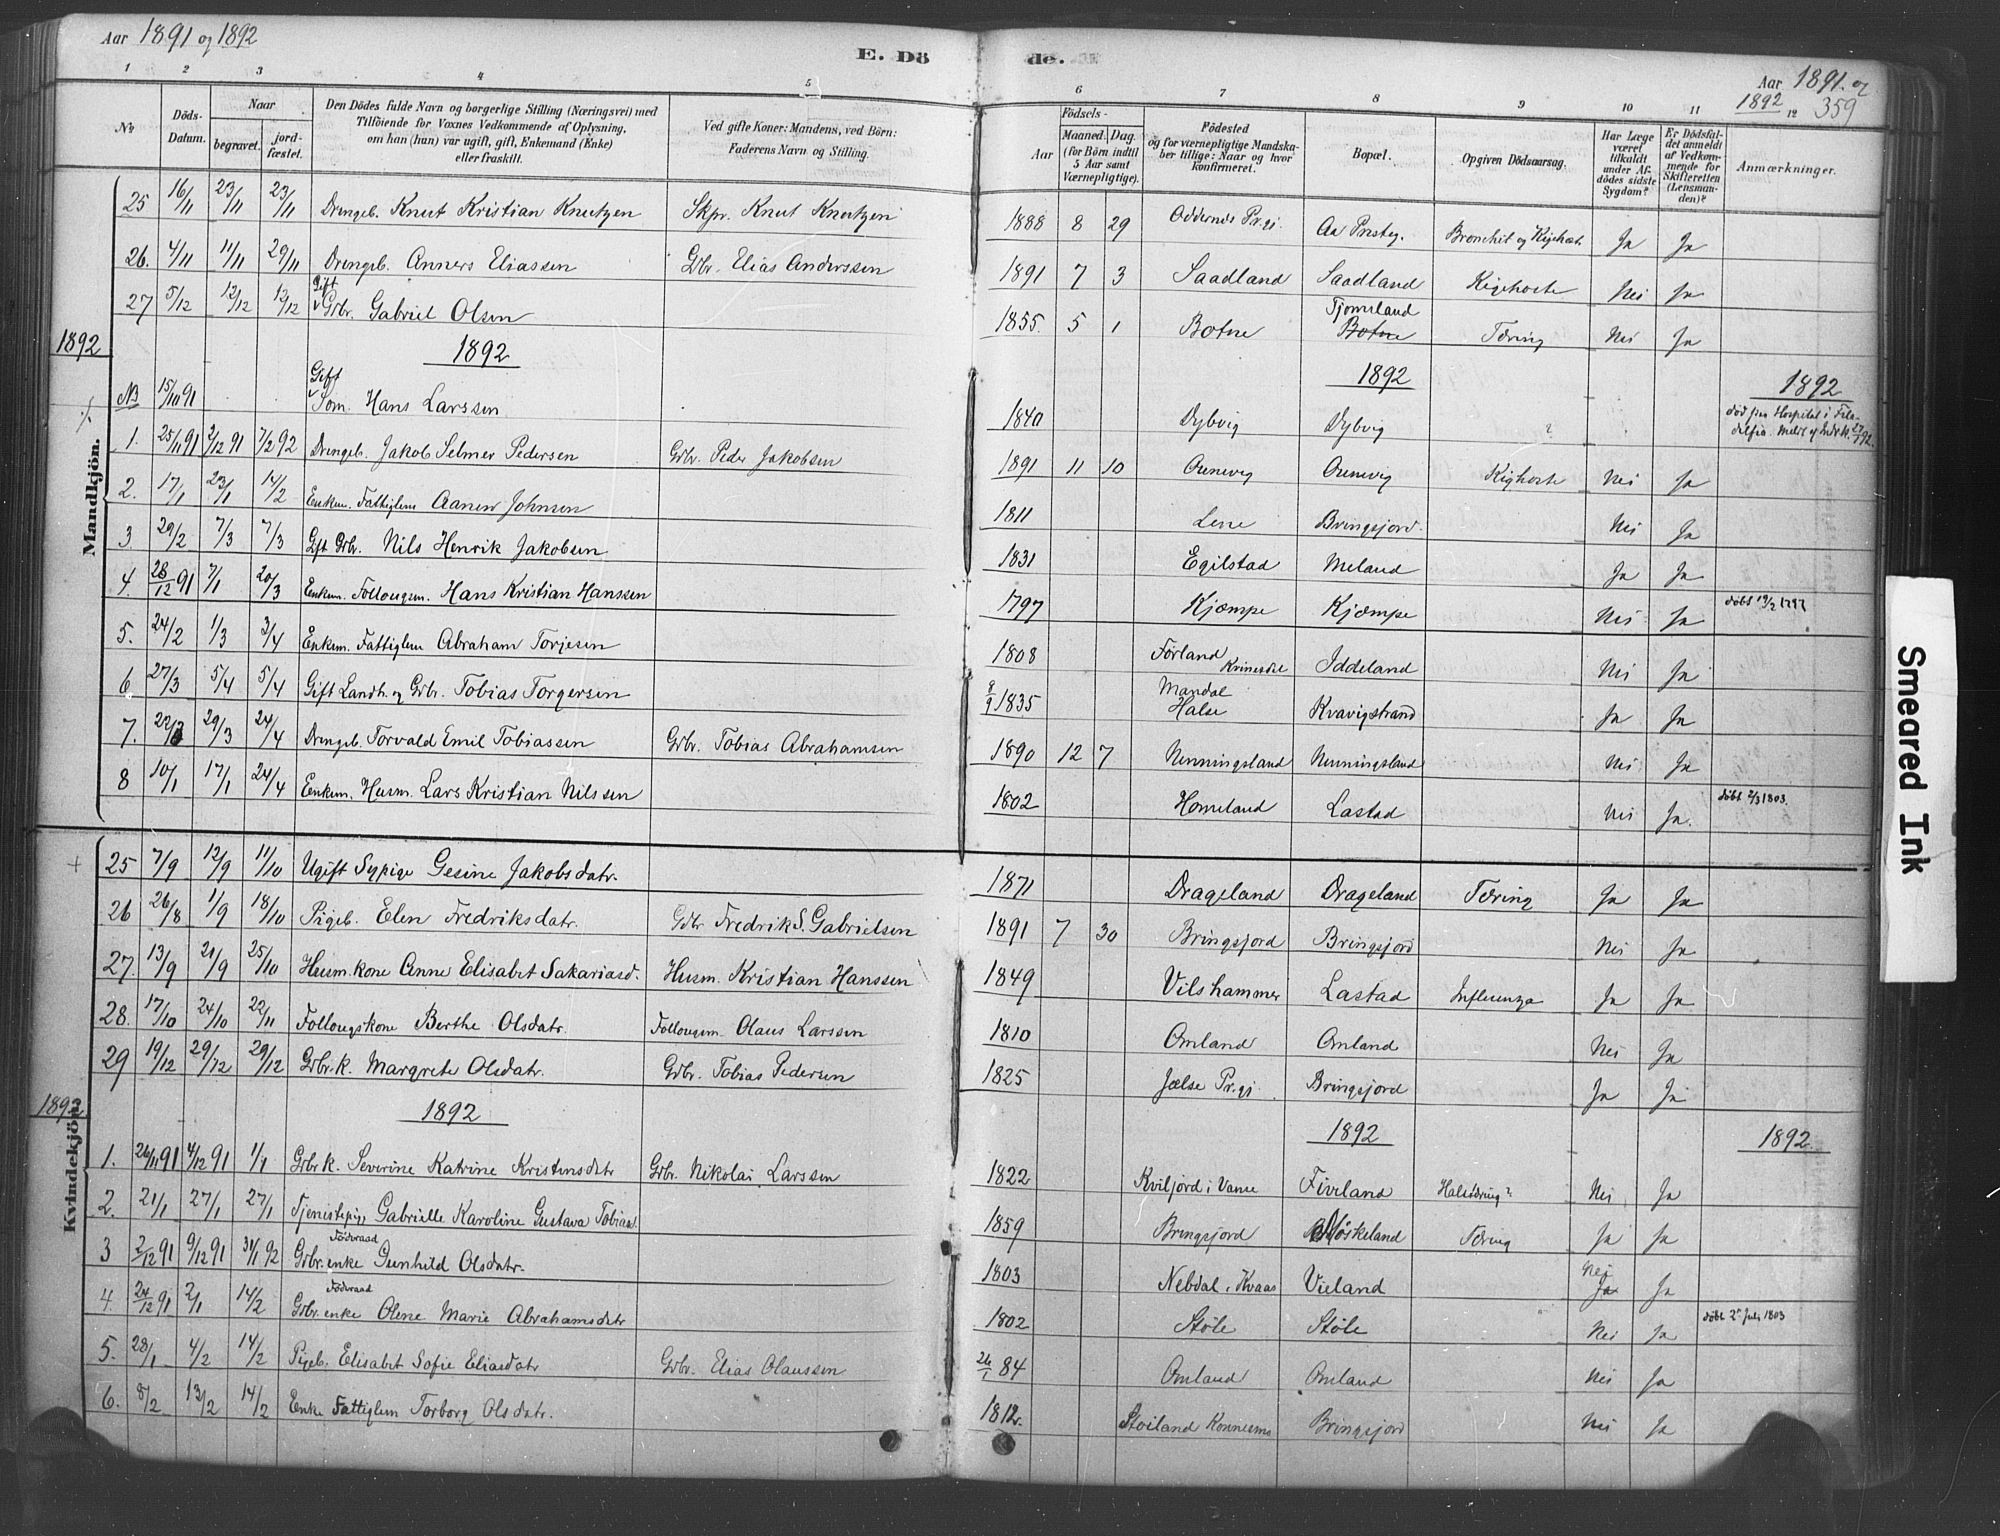 Aar 1891 og 1892
E. Dö de.
Aar 1891. og 1892
359
1 2 3 4 5 6 7 8 9 10 11 12
No
Döds-Datum.
Naar
begravet.
jord-fæstet.
Den Dödes fulde Navn og borgerlige Stilling (Næringsvei) med Tilföiende for Voxnes Vedkommende af Oplysning, om han (hun) var ugift, gift, Enkemand (Enke) eller fraskilt.
Ved gifte Koner: Mandens, ved Börn: Faderens Navn og Stilling.
Födsels-
Aar
Maaned. Dag.
(for Börn indtil 5 Aar samt Værnepligtige).
Födested og for værnepligtige Mandskaber tillige: Naar og hvor konfirmeret.
Bopæl.
Opgiven Dödsaarsag.
Har Læge været tilkaldt under Afdödes sidste Sygdom?
Er Dödsfaldet anmeldt af Vedkommende for Skifteretten (Lensmanden)?
Anmærkninger.
Mandkjön.
25 16/11 23/11 23/11 Drengeb. Knut Kristian Knutzen Skpr. Knut Knutzen 1888 8 29 Oddernes Pr.gj. Aa Prstg. Bronchit og Kighost. Ja Ja
26. 4/11 11/11 29/11 Drengeb. Anners Eliassen Grbr. Elias Anderssen 1891 7 3 Saadland Saadland Kighoste Nei Ja
27 5/12 12/12 12/12 Gift Grbr. Gabriel Olsen 1855. 5 1 Botne Tjomsland Botne Tæring Nei Ja
1892 1892 1892 1892
NB 15/10 91 Gift Søm. Hans Larssen 1840 Dybvig Dybvig ? død paa Hospital i Filadelfia. Meldt af
1. 25/11 91 2/12 91 7/2 92 Drengeb. Jakob Selmer Pedersen Grbr. Peder Jakobsen 1891 11 10 Orenevig Orenevig Kighoste Nei Ja
2. 17/1 23/1 14/2 Enkem. Fattiglem Aanen Johnsen 1811 Lene Bringsjord. Nei Ja
3. 29/2 7/3 7/3 Gift Grbr. Nils Henrik Jakobsen 1831 Egilstad Meland Ja Ja
4. 28/12 91 7/1 20/3 Enkem. Follougsm. Hans Kristian Hanssen 1797 Kjæmpe Kjæmpe Nei Ja døbt 19/2 1797
5. 24/2 1/3 3/4 Enkem. Fattiglem Abraham Torjesen 1808 Førland Kvinesdal Iddeland Nei Ja
6 27/3 5/4 5/4 Gift Landh. og Grbr. Tobias Torgersen 8/9 1835 Mandal Halse Kvavigstrand Ja Ja
7. 22/3 29/3 24/4 Drengeb. Torvald Emil Tobiassen Grbr. Tobias Abrahamsen 1890 12 7 Nenningsland Nenningsland Nei Ja
8 10/1 17/1 24/4 Enkem. Husm. Lars Kristian Nilssen 1802 Homeland Lastad Nei Ja. døbt 2/3 1803.
Kvindekjön
25 7/9 12/9 11/10 Ugift Sypige Gesine Jakobsdatr. 1871 Drageland Drageland Tæring Ja Ja
26 26/8 1/9 18/10 Pigeb. Elen Fredriksdatr. Grbr Fredrik S. Gabrielsen 1891 7 30 Bringsjord Bringsjord Nei Ja
27. 13/9 21/9 25/10 Husm.kone Anne Elisabet Sakariasd. Husm. Kristian Hanssen 1849 Vilshammer Lastad Influenza Ja Ja
28. 17/10 24/10 22/11 Follougskone Berthe Olsdatr. Follougsm. Olaus Larssen 1810 Omland Omland Nei Ja
29 19/12 29/12 29/12 Grbr.k. Margrete Olsdatr. Grbr. Tobias Pedersen 1825 Jælse Pr.gj. Bringsjord Ja Ja
1892 1892 1892 1892
1. 26/11 91 4/12 91 1/1 Grbr k. Severine Katrine Kristensdatr Grbr. Nikolai Larssen 1822 Kviljord i Vanse Fiveland Halsbring? Nei Ja
2. 21/1 27/1 27/1 Tjenestepige Gabrielle Karoline Gustava Tobiasd. 1859 Bringsjord Møskeland Tæring Ja Ja
3 2/12 91 9/12 91 31/1 92 Grbr. enke Føderaad Gunhild Olsdatr. 1803 Nebdal i Kvaas Vieland Nei Ja Ja
4. 24/12 91 2/1 14/2 Grbr. enke Føderaad Olene Marie Abrahamsdatr 1802 Støle Støle Nei Ja døbt 2n July 1803
5. 28/1 4/2 14/2 Pigeb. Elisabet Sofie Eliasdatr Grbr. Elias Olaussen 26/1 84 Omland Omland Nei Ja
6. 8/2 13/2 14/2 Enke Fattiglem Torborg Olsdatr. 1812. Støiland Konnesmo Bringsjord Nei Ja
Smeared Ink